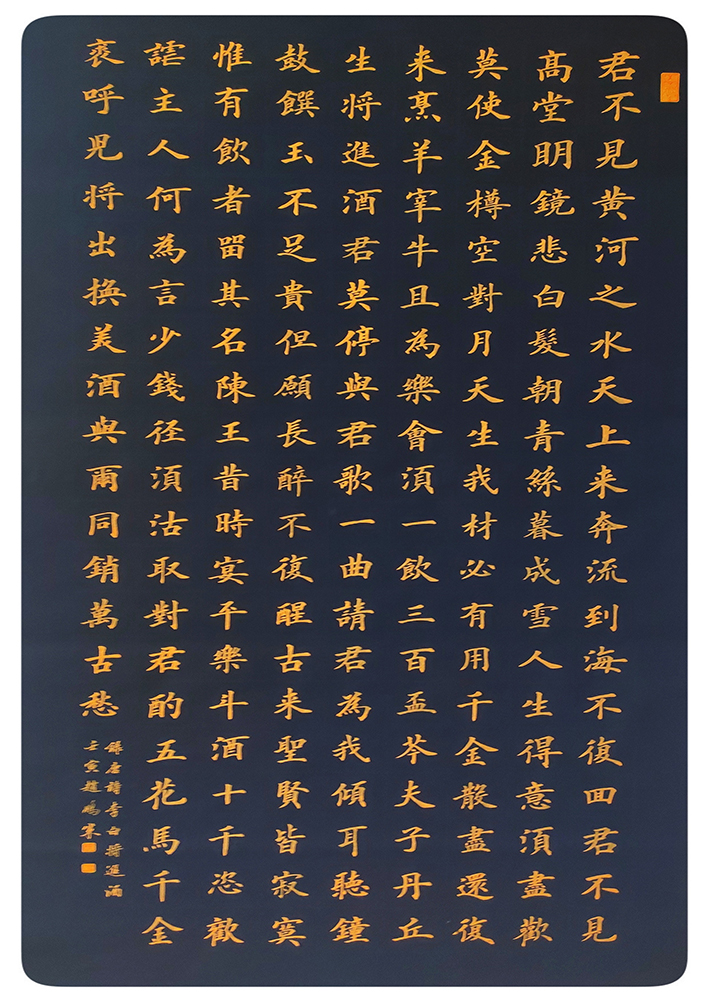 君不見黄河之水天上来奔流到海不復囬君不見
髙堂眀鏡悲白髮朝青絲暮成雪人生得意須盡歡
莫使金樽空對月天生我材必有用千金散盡還復
来烹羊宰牛且為樂會須一飲三百盃岑夫子丹丘
生将進酒君莫停與君歌一曲請君為我傾耳聽鐘
鼓饌玉不足貴但願長醉不復醒古来聖賢皆寂寞
惟有飲者留其名陳王昔時宴平樂斗酒十千恣歡
謔主人何為言少錢径須沽取對君酌五花馬千金
裘呼兒将出換美酒與爾同銷萬古愁
録唐詩李白將進酒
壬寅趙鵬